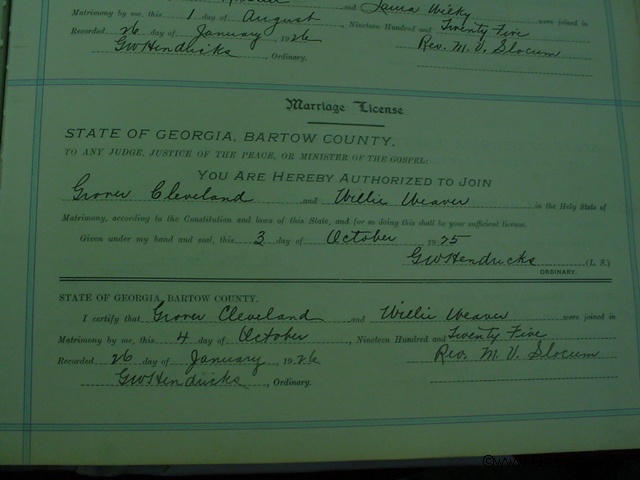 and Laura Wilky
Matrimony by me, this 1 day of August, Nineteen Hundred and Twenty Five were joined in
Recorded 26 day of January 1926 Rev. M. V. Slocum
GW Hendricks, Ordinary.
Marriage License
STATE OF GEORGIA, BARTOW COUNTY.
TO ANY JUDGE, JUSTICE OF THE PEACE, OR MINISTER OF THE GOSPEL:
YOU ARE HEREBY AUTHORIZED TO JOIN
Grover Cleveland and Willie Weaver in the Holy State of
Matrimony, according to the Constitution and laws of this State, and for so doing this shall be your sufficient license.
Given under my hand and seal, this 3 day of October 1925
GW Hendricks (L. S.)
ORDINARY.
STATE OF GEORGIA, BARTOW COUNTY.
I certify that Grover Cleveland and Willie Weaver were joined in
Matrimony by me, this 4 day of October, Nineteen Hundred and Twenty Five
Recorded 26 day of January, 1926 Rev. M. V. Slocum
GW Hendricks, Ordinary.